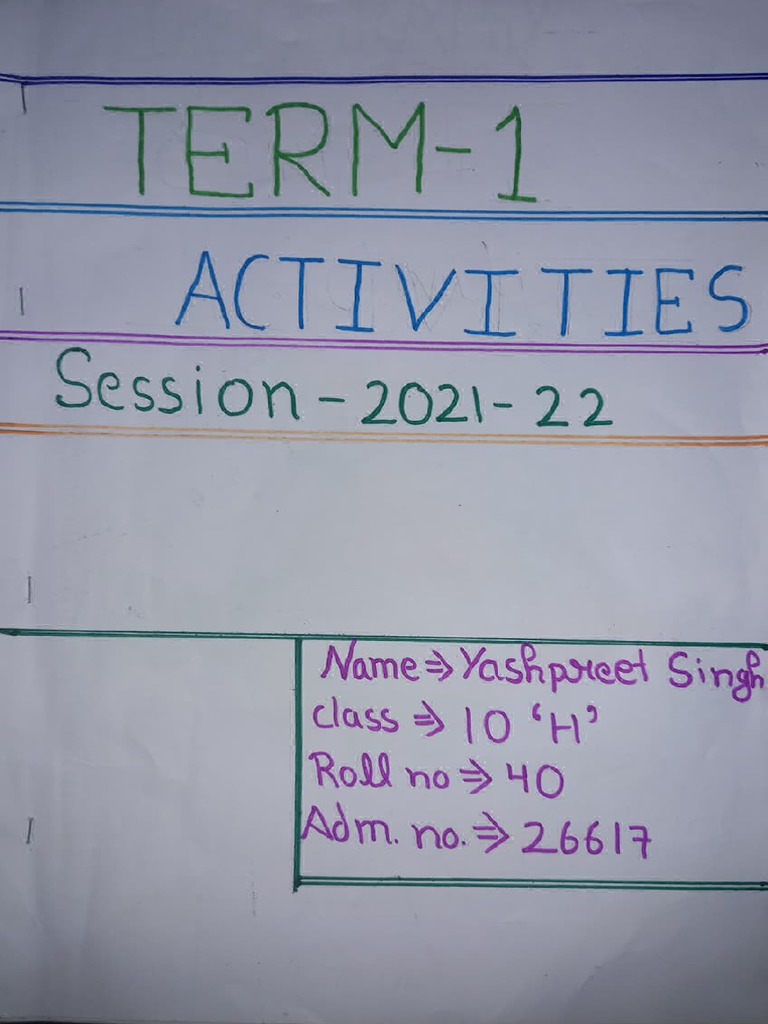 TERM-1
ACTIVITIES
Session - 2021-22
Name ⇒ Yashpreet Singh
class ⇒ 10 'H'
Roll no ⇒ 40
Adm. no. ⇒ 26617